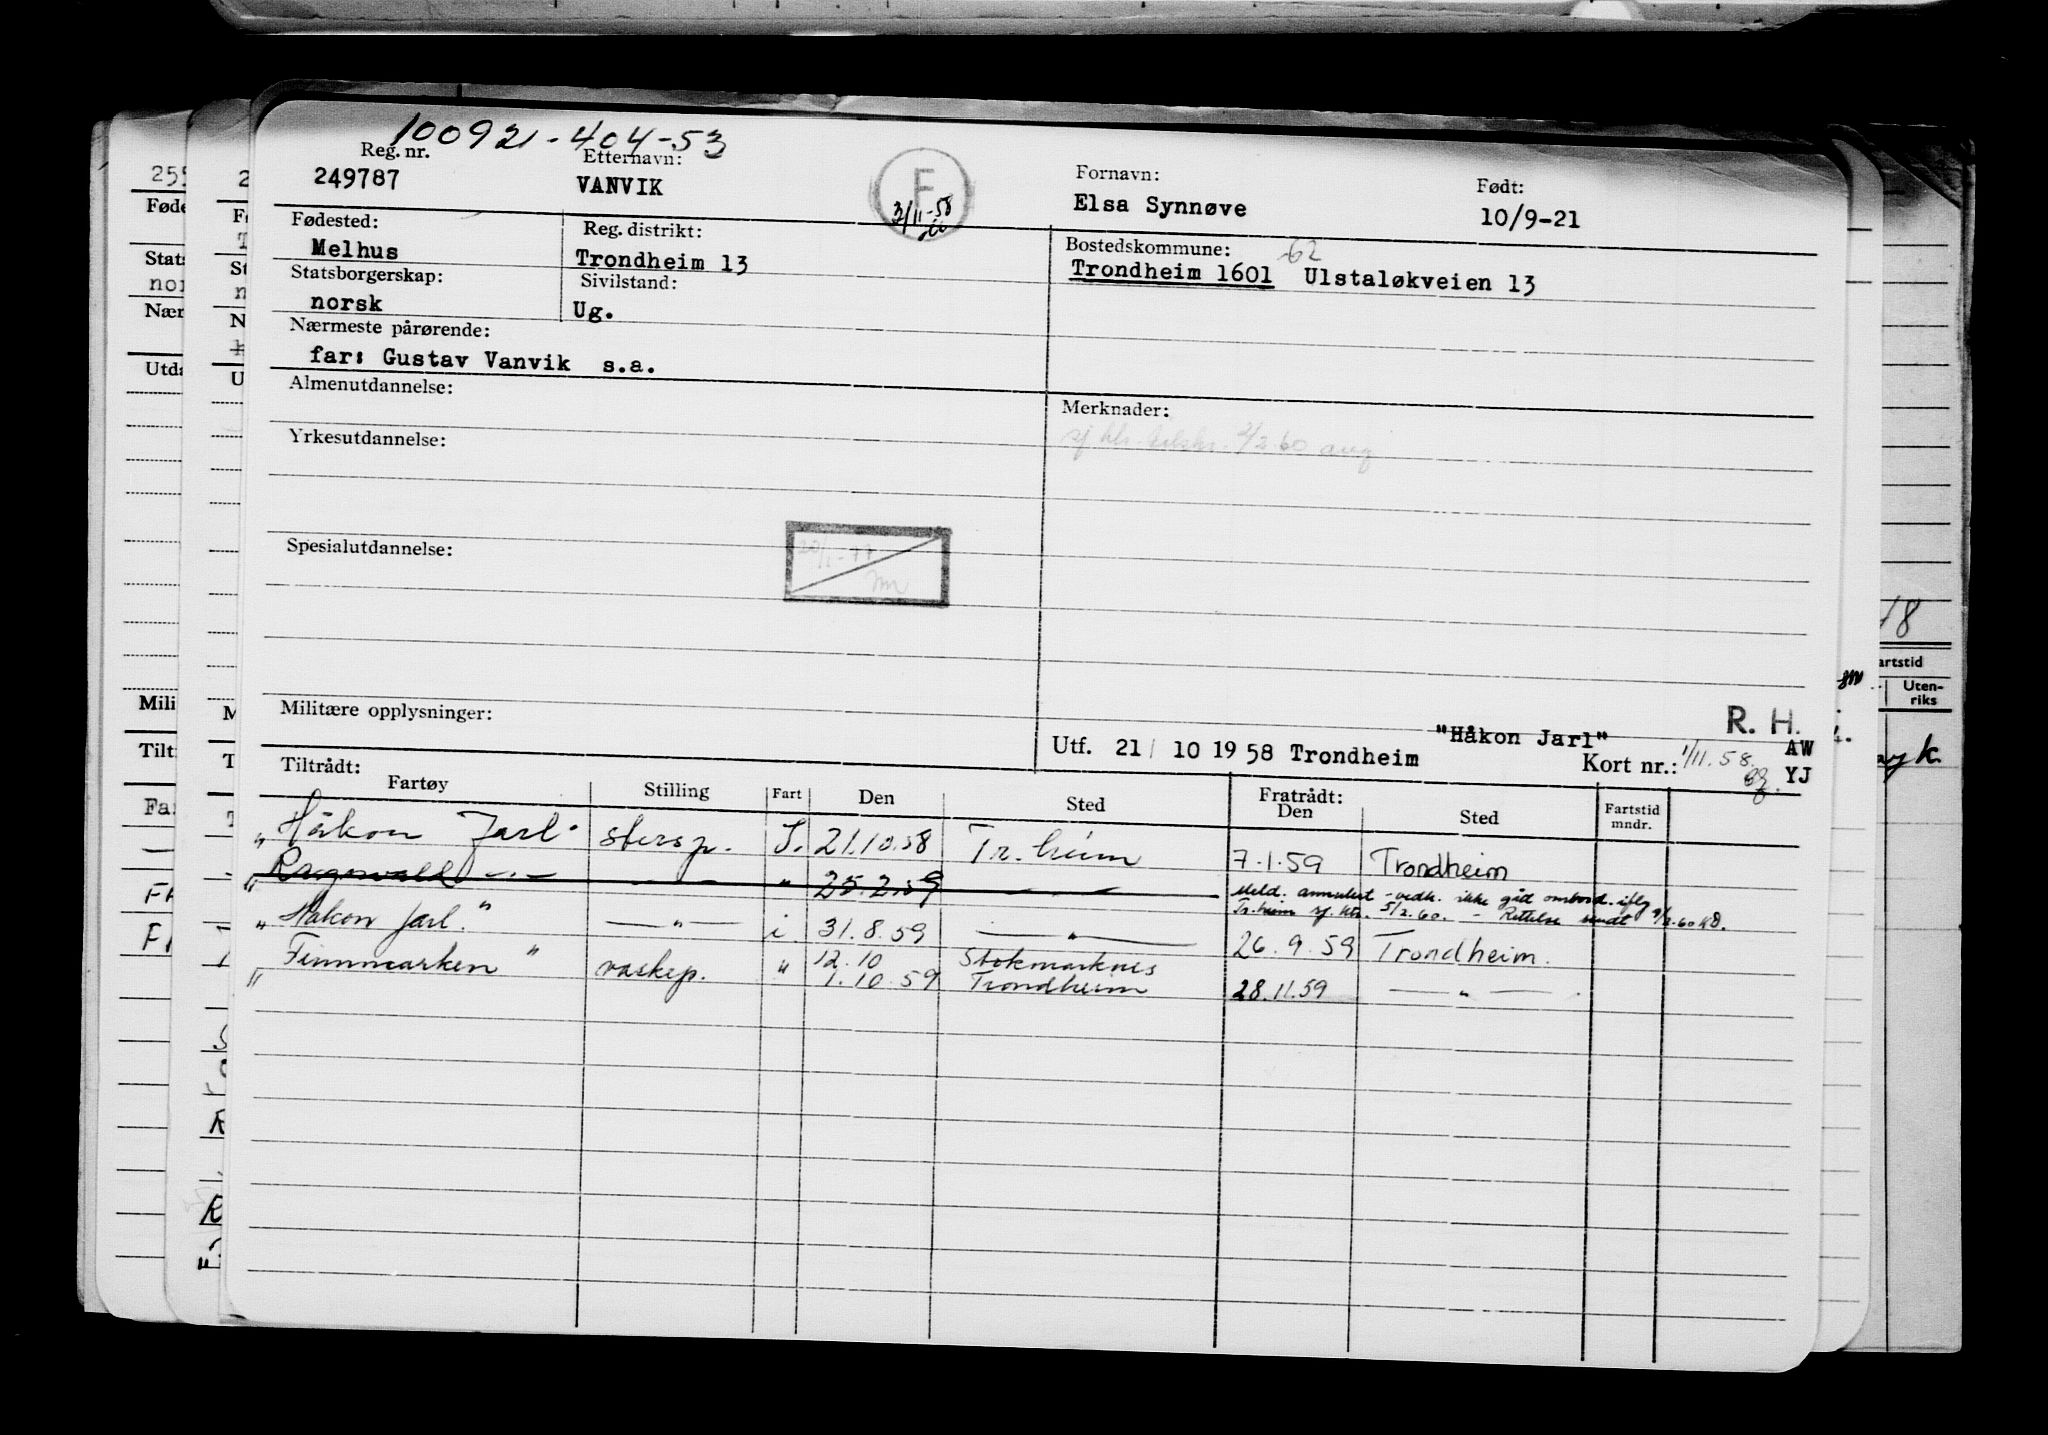 100921-404-53
Reg. nr. Etternavn: Fornavn: Født:
249787 VANVIK F Elsa Synnøve 10/9-21
3/11-58
Fødested: Reg. distrikt: Bostedskommune: -62
Melhus Trondheim 13 Trondheim 1601 Ulstaløkveien 13
Statsborgerskap: Sivilstand:
norsk Ug.
Nærmeste pårørende:
far: Gustav Vanvik s.a.
Almenutdannelse: Merknader:
2/2-60
Yrkesutdannelse:
Spesialutdannelse:
Militære opplysninger:
"Håkon Jarl" R. H.
Utf. 21/ 10 1958 Trondheim Kort nr.: 1/11.58. AW
YJ
Tiltrådt: Fratrådt:
Fartøy Stilling Fart Den Sted Den Sted Fartstid mndr.
"Håkon Jarl" I. 21.10.58 Tr.heim 7.1.59 Trondheim
"Ragnvald — " — — " — " 25.2.59 — " —
Meld. annulert - vedk. ikke gåt ombord. iflg
Tr.heim sj. ktr. 5/2.60. - Rettelse sendt 9/2-60 KB.
"Håkon Jarl." — " — i 31.8.59 — " — 26.9.59 Trondheim.
"Finnmarken" vaskep. " 12.10 Stokmarknes
1.10.59 Trondheim 28.11.59 — " —